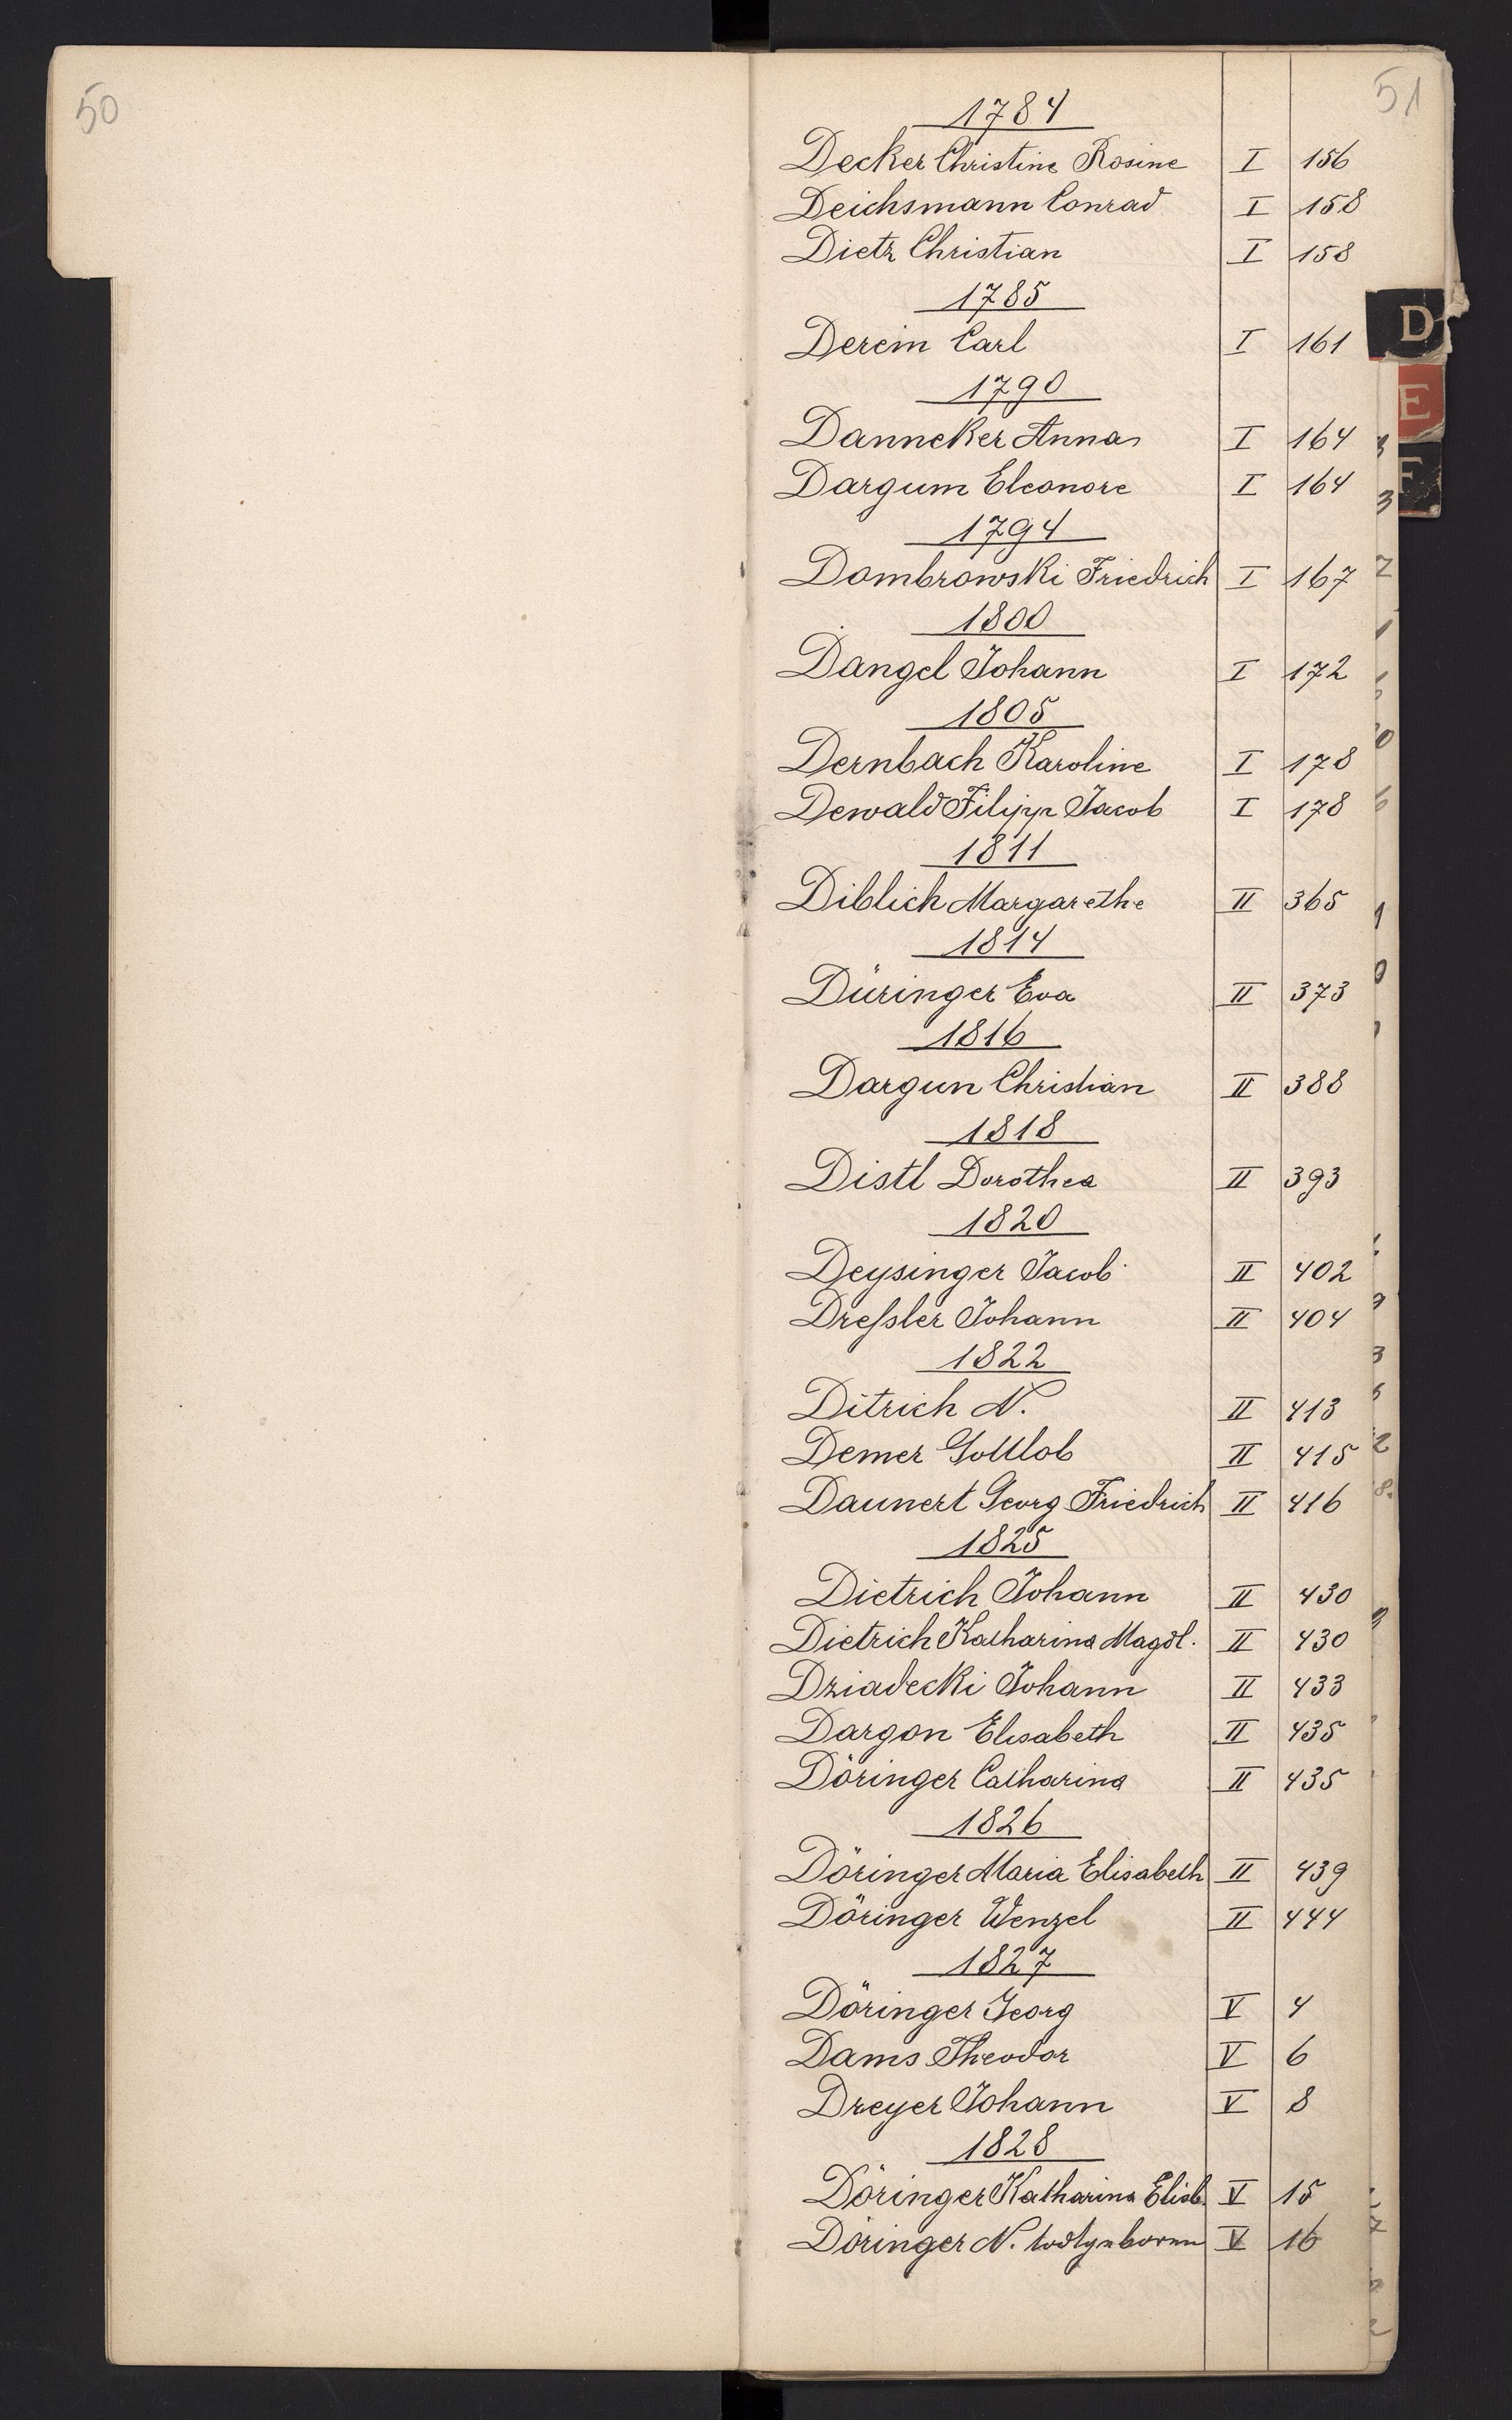 50
51
1784
Decker Christine Rosine I 156
Deichsmann Conrad I 158
Dietz Christian I 158
1785
Derein Carl I 161
D
1790
E
Danneker Anna I 164
Dargum Eleonore I 164
F
1794
Dombrowski Friedrich I 167
1800
Dangel Johann I 172
1805
Dernbach Karoline I 178
Dewald Filipp Jacob I 178
1811
Diblich Margarethe II 365
1814
Düringer Eva II 373
1816
Dargun Christian II 388
1818
Distl Dorothea II 393
1820
Deysinger Jacob II 402
Dreſsler Johann II 404
1822
Ditrich N. II 413
Demer Gottlob II 415
Daunert Georg Friedrich II 416
1825
Dietrich Johann II 430
Dietrich Katharina Magdl. II 430
Dziadecki Johann II 433
Dargon Elisabeth II 435
Döringer Catharina II 435
1826
Döringer Maria Elisabeth II 439
Döringer Wenzel II 444
1827
Döringer Georg V 4
Dams Theodor V 6
Dreyer Johann V 8
1828
Döringer Katharina Elisb. V 15
Döringer N. todtgeboren V 16